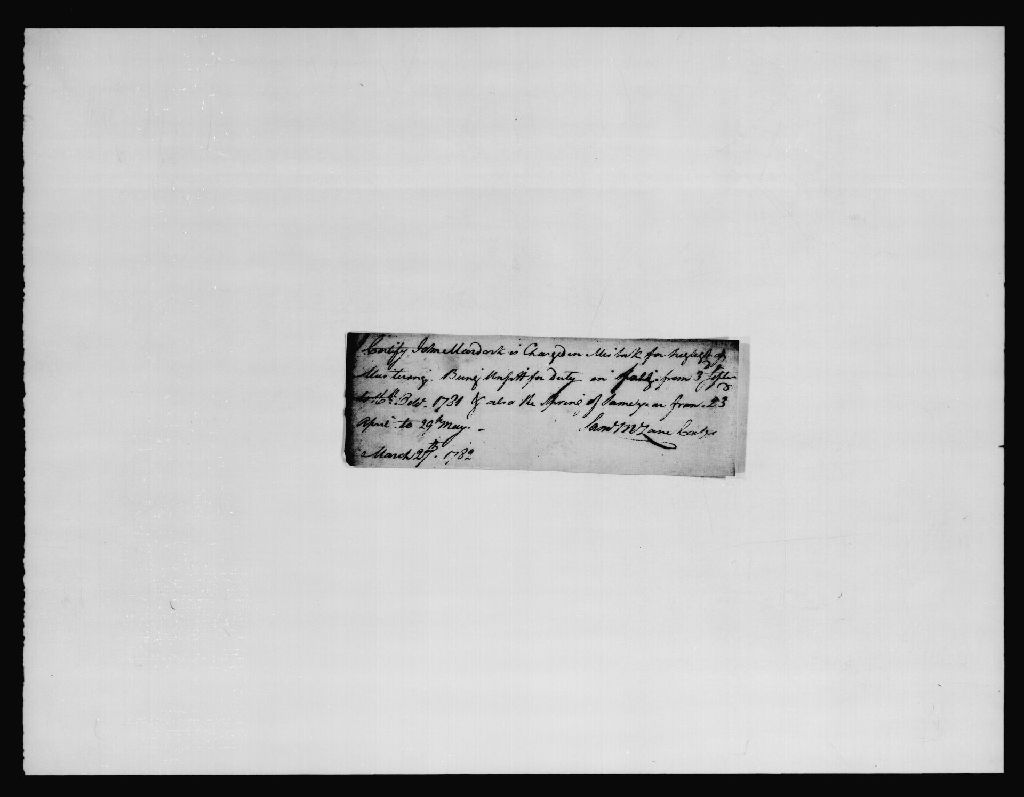 Certify John Murdock is Charged in Mis book for neglect of
Mustering. Being Unfitt for duty in fall from 3 Septr
to 16th 1781 & also the Spring of Same year from 23
April to 29th May. -
Saml McLane
March 27th. 1782